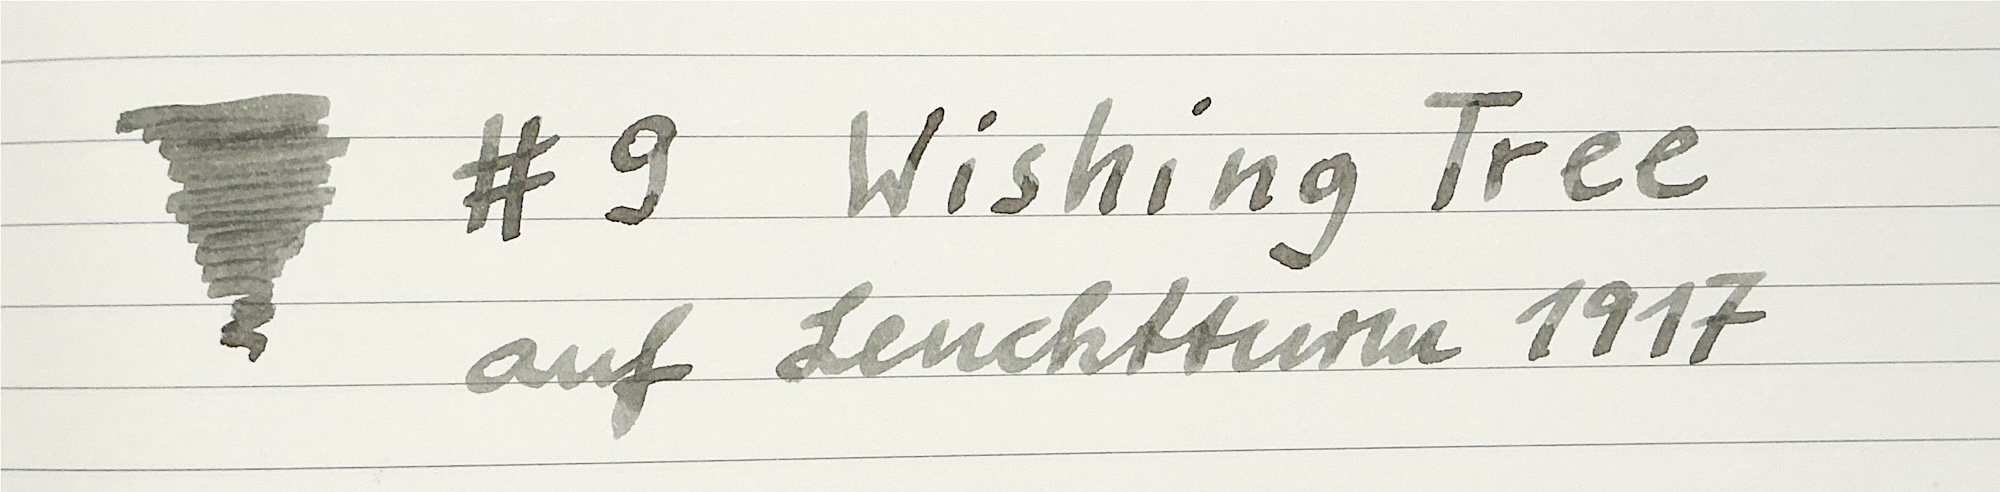 #9 Wishing Tree
auf Leuchtturm 1917